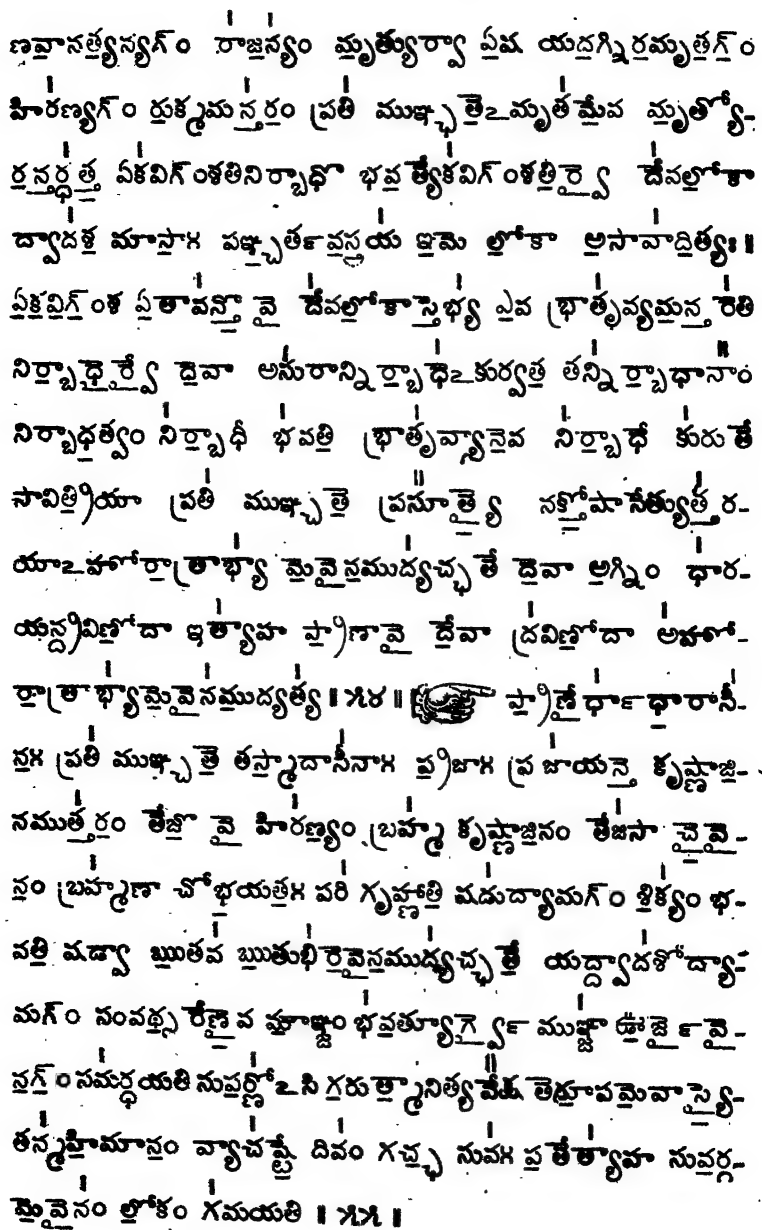 ణవానత్యన్యగ్ం రా॑జన్యం॑ మృత్యుర్వా ఏష యదగ్నిరమృతగ్ం॑
హిర॑ణ్యగ్ం రుక్మమన్త॑రం ప్రతి॑ ముఞ్చతే౽మృత॑మేవ మృత్యో-
రన్తర్ధ॑త్త ఏక॑విగ్ంశతినిర్బాధో భవత్యేక॑విగ్ంశతిర్వై దే॑వలోకా
ద్వాద॑శ మాసాః పఞ్చర్తవస్త్రయ ఇమే లోకా అసావా॑దిత్యః॥
ఏ॑కవిగ్ంశ ఏతావ॑న్తో వై దే॑వలోకాస్తేభ్య॑ ఎవ భ్రాతృ॑వ్యమన్త రే॑తి
నిర్బాధైర్వై దేవా అసు॑రాన్నిర్బాధే౽కుర్వత తన్నిర్బాధానాం॑
నిర్బాధత్వం ని॑ర్బాధీ భ॑వతి భ్రాతృ॑వ్యానేవ ని॑ర్బాధే కు॑రుతే
సావిత్రియా ప్రతి॑ ముఞ్చతే ప్రసూ॑త్యై నక్తోషాసేత్యుత్త॑ర-
యా౽హోరాత్రాభ్యా॑ మేవైనముద్య॑చ్ఛతే దేవా అగ్నిం ధా॑ర-
యన్ద్రవిణోదా ఇత్యా॑హ ప్రాణావై దేవా ద్ర॑విణోదా అ॑హో-
రాత్రాభ్యా॑మేవైన॑ముద్యత్య॑ ॥ ౫౪ ॥ ప్రాణైర్దా॑ధారాసీ॑-
నః ప్రతి॑ ముఞ్చతే తస్మాదాసీ॑నాః ప్రజాః ప్రజా॑యన్తే కృష్ణాజి-
నముత్త॑రం తేజో వై హిర॑ణ్యం బ్రహ్మ॑ కృష్ణాజినం తేజ॑సా చైవై-
నం బ్రహ్మ॑ణా చోభయతః పరి॑ గృహ్ణాతి షడుద్యామగ్ం శిక్యం॑ భ-
వతి షడ్వా ఋతవ॑ ఋతుభి॑రేవైనముద్య॑చ్ఛతే యద్ద్వాద॑శోద్యా-
మగ్ం సంవథ్సరేణైవ మౌఞ్జం భ॑వత్యూర్గ్వై ముఞ్జా॑ ఊర్జైవై-
నగ్ం సమ॑ర్ధయతి సుపర్ణో॑౽సి గరుత్మానిత్యవే॓క్ష తేరూపమేవాస్యై-
తన్మ॑హిమానం వ్యాచ॑ష్టే దివం॑ గచ్ఛ సువః॑ పతేత్యా॑హ సువర్గ-
మేవైనం॑ లోకం గ॑మయతి ॥ ౫౫ ॥